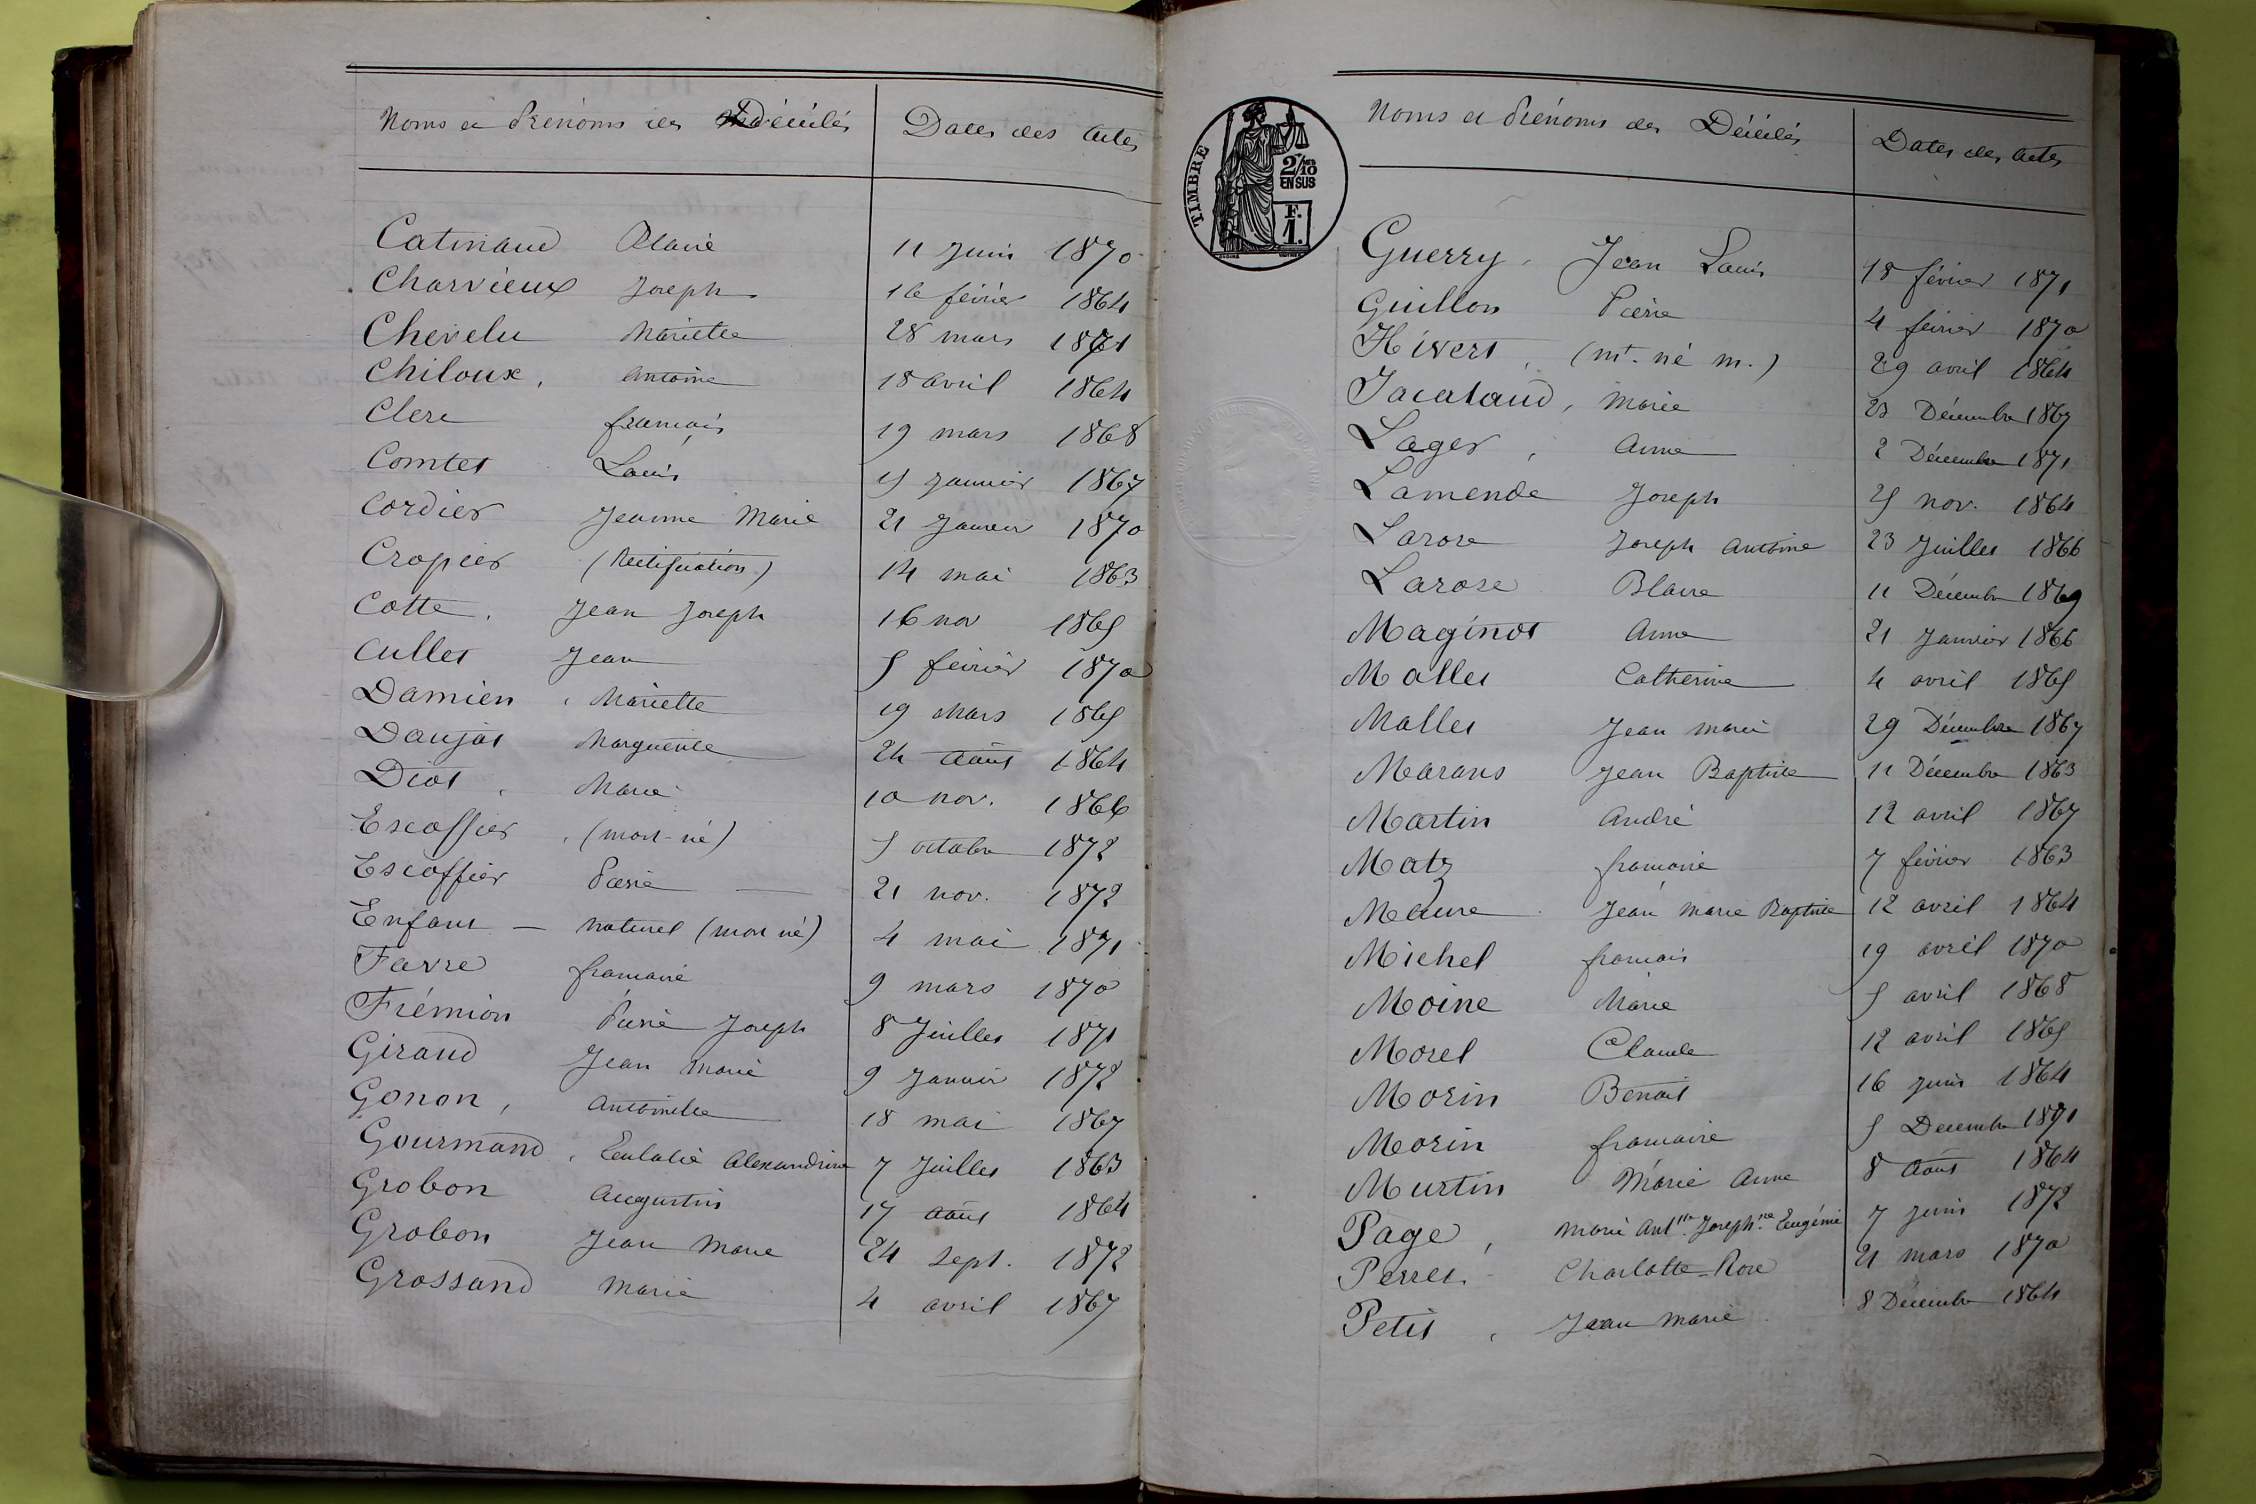 Noms et Prénoms des Décédés Dates des actes
Catinaud Marie 11 Juin 1870
Charvieux Joseph 16 février 1864
Chevelu Mariette 28 mars 1871
Chiloux, Antoine 18 avril 1864
Clerc françois 19 mars 1868
Comtet Louis 15 Janvier 1867
Cordier Jeanne Marie 21 Janvier 1870
Cropier (Rectification) 14 mai 1863
Cotte, Jean Joseph 16 nov 1865
Cullet Jean 5 février 1870
Damien, Mariette 19 Mars 1865
Daujat Marguerite 24 Août 1864
Diot, Marie 10 nov. 1866
Escoffier, (mort-né) 5 octobre 1872
Escoffier Pierre 21 nov. 1872
Enfant — naturel (mort né) 4 mai 1871
Favre françoise 9 mars 1870
Frémion Pierre Joseph 8 Juillet 1871
Giraud Jean Marie 9 Janvier 1872
Gonon, Antoinette 18 mai 1867
Gourmand, Eulalie Alexandrine 7 Juillet 1863
Grobon Augustin 17 Août 1864
Grobon Jean Marie 24 Sept. 1872
Grossand Marie 4 avril 1867
TIMBRE
2/10 EN SUS
F. 1.
Noms et Prénoms des Décédés Dates des actes
Guerry, Jean Louis 18 février 1871
Guillon Pierre 4 février 1870
Hivert, (mt. né m.) 29 avril 1864
Jacataud, Marie 23 Décembre 1867
Lager, Anne 2 Décembre 1871
Lamende Joseph 25 nov. 1864
Larose Joseph Antoine 23 Juillet 1866
Larose Blaise 11 Décembre 1869
Maginot Anne 21 Janvier 1866
Mallet Catherine 4 avril 1865
Mallet Jean Marie 29 Décembre 1867
Marans Jean Baptiste 11 Décembre 1863
Martin André 12 avril 1867
Matz françoise 7 février 1863
Jean Marie Baptiste 12 avril 1864
Michel françois 19 avril 1870
Moine Marie 5 avril 1868
Morel Claude 12 avril 1865
Morin Benoit 16 Juin 1864
Morin françoise 5 Decembre 1871
Murtin Marie Anne 8 Août 1864
Page, Marie Ant.tte Joseph.ne Eugénie 7 Juin 1872
Perret Charlotte-Rose 21 mars 1870
Petit, Jean Marie 8 Décembre 1864